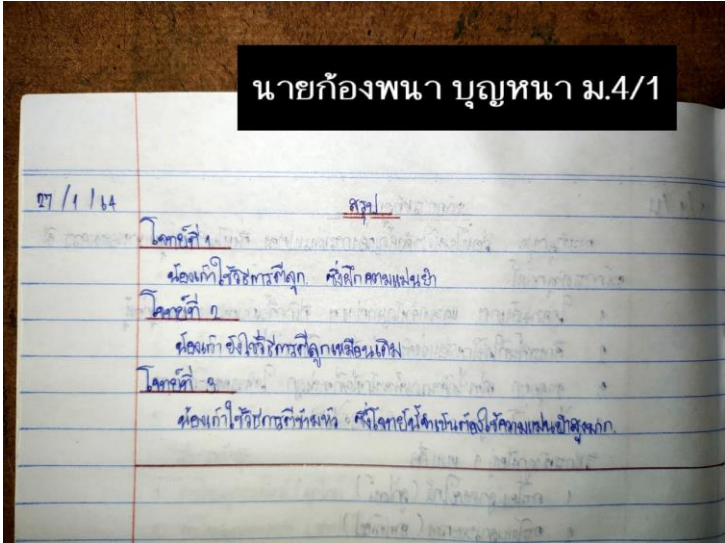 นายก้องพนา บุญหนา ม.4/1
27/1/64
สรุป
โจทย์ที่ 1
น้องเก้าใช้วิธีการตีลูก ซึ่งฝึกความแม่นยำ
โจทย์ที่ 2
น้องเก้า ยังใช้วิธีการตีลูกเหมือนเดิม
โจทย์ที่ 3
น้องเก้าใช้วิธีการตีข้ามหัว ซึ่งโจทย์นี้จำเป็นต้องใช้ความแม่นยำสูงมาก